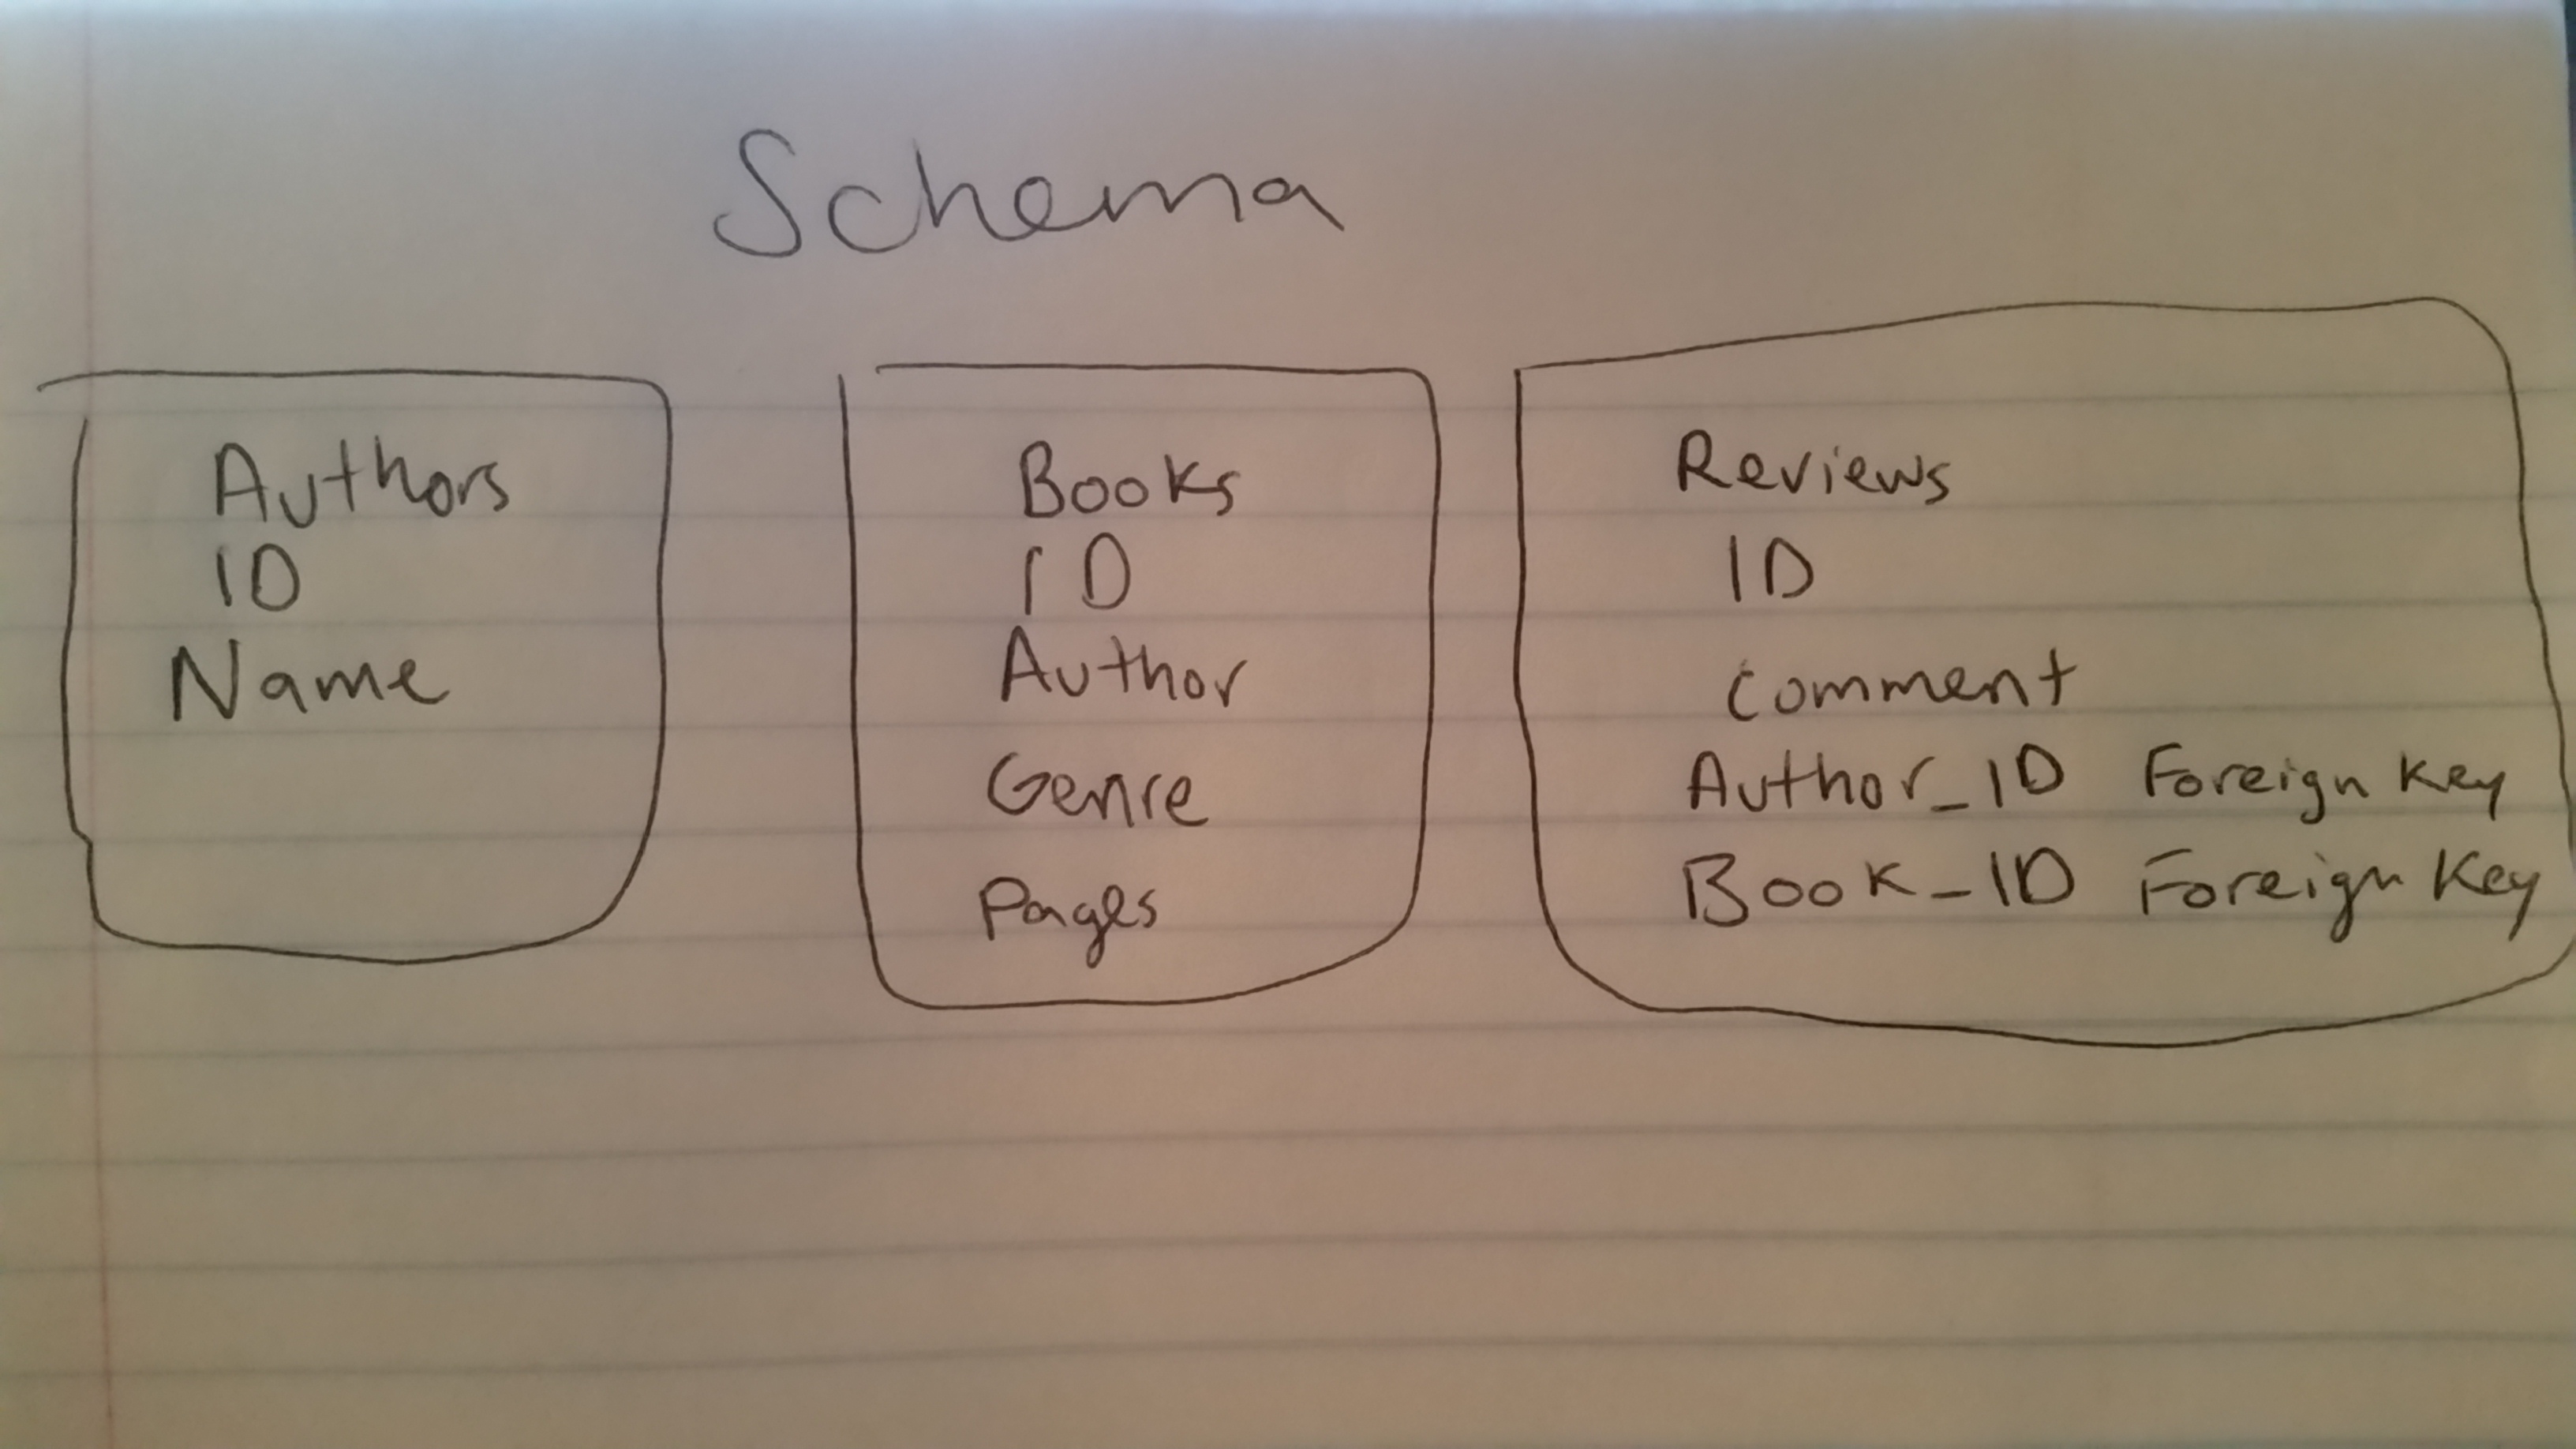 Schema
Authors
ID
Name
Books
ID
Author
Genre
Pages
Reviews
ID
Comment
Author_ID Foreign Key
Book_ID Foreign Key